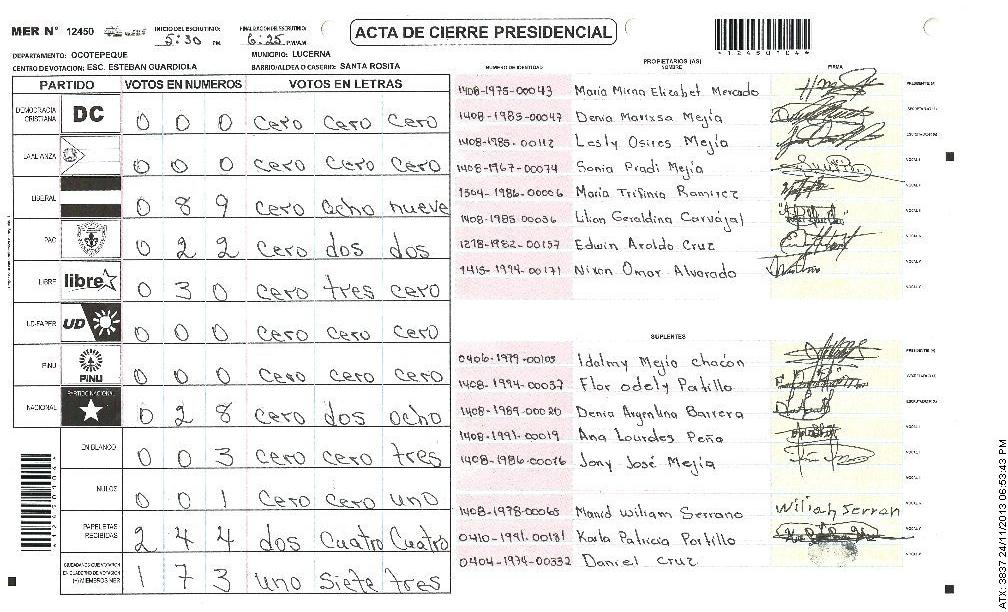 MER N° 12450
INICIO DEL ESCRUTINIO: 5:30 PM
FINALIZACION DEL ESCRUTINIO: 6:25 PM/AM
ACTA DE CIERRE PRESIDENCIAL
DEPARTAMENTO: OCOTEPEQUE
MUNICIPIO: LUCERNA
CENTRO DE VOTACION: ESC. ESTEBAN GUARDIOLA
BARRIO/ALDEA O CASERIO: SANTA ROSITA
PARTIDO VOTOS EN NUMEROS VOTOS EN LETRAS
DEMOCRACIA CRISTIANA DC 0 0 0 cero cero cero
LA ALIANZA 0 0 0 cero cero cero
LIBERAL 0 8 9 cero ocho nueve
PAC 0 2 2 cero dos dos
LIBRE libre 0 3 0 cero tres cero
UD-FAPER UD 0 0 0 cero cero cero
PINU PINU 0 0 0 cero cero cero
NACIONAL PARTIDO NACIONAL 0 2 8 cero dos ocho
EN BLANCO 0 0 3 cero cero tres
NULOS 0 0 1 cero cero uno
PAPELETAS RECIBIDAS 2 4 4 dos cuatro cuatro
CIUDADANOS QUE VOTARON EN CUADERNO DE VOTACION (+) MIEMBROS MER 1 7 3 uno siete tres
PROPIETARIOS (AS)
NUMERO DE IDENTIDAD NOMBRE FIRMA
1408-1975-00043 Maria Mirna Elizabet Mercado
1408-1983-00047 Denia Marixsa Mejía
1408-1985-00112 Lesly Osires Mejía
1408-1967-00074 Sonia Pradi Mejía
1304-1986-00006 María Trifinia Ramirez
1408-1985-00036 Lilian Geraldina Carvajal
1218-1982-00157 Edwin Aroldo Cruz
1415-1994-00171 Nixon Omar Alvarado
SUPLENTES
0406-1979-00105 Idalmy Mejía chacón
1408-1994-00037 Flor odely Patillo
1408-1989-00020 Denia Argentina Barrera
1408-1991-00019 Ana Lourdes Peña
1408-1986-00076 Jony José Mejía
1408-1978-00065 Manid wiliam Serrano
0410-1991-00181 Karla Patricia Portillo
0404-1974-00332 Daniel cruz
ATX: 3837 24/11/2013 06:53:43 PM